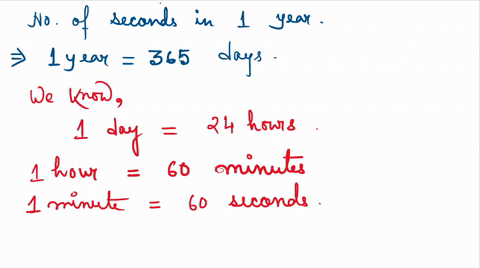 No. of seconds in 1 year.
⇒ 1 year = 365 days.
We know,
1 day = 24 hours.
1 hour = 60 minutes
1 minute = 60 seconds.